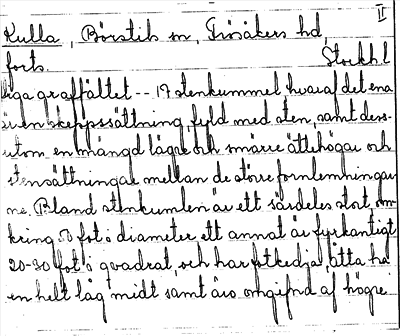 II
Kulla, Börstils sn, Frösåkers hd,
forts. Stockh. l
liga graffältet -- 17 stenkummel hvaraf det ena
är en skeppssättning, fyld med sten, samt dess-
utom en mängd lägre och smärre ättehögar och
stensättningar mellan de större fornlemningar
ne. Bland stenkumlen är ett särdeles stort, om
kring fot i diameter, ett annat är fyrkantigt
20-30 fot i qvadrat, och har fotkedja, åtta ha
en helt låg midt samt äro omgifna af högre